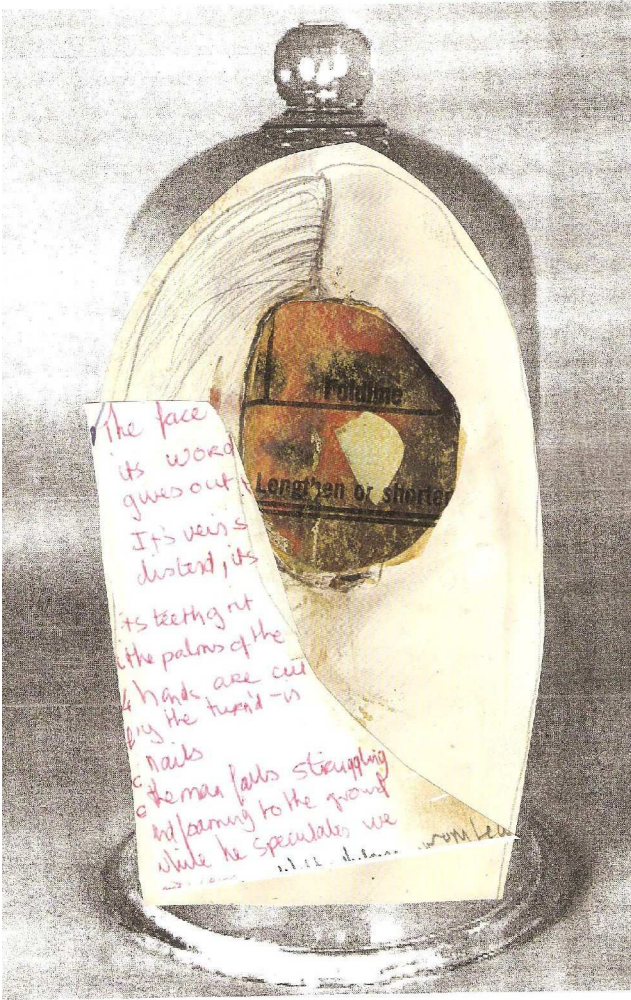 Foldline
Lengthen or shorten
The face
its word
gives out
It's veins
distend, its
its teeth grit
the palms of the
hands are cut
by the turn'd-in
nails
the man falls struggling
and foaming to the ground
while he speculates we